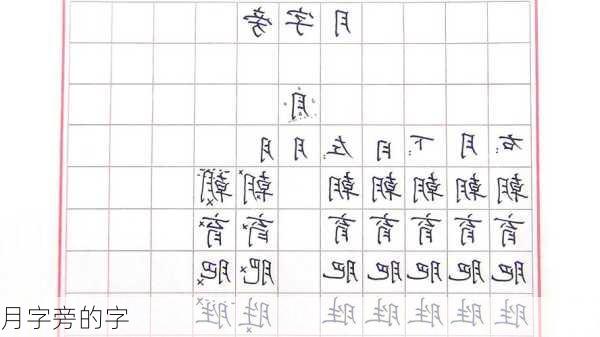 月字旁
月
右：月 下：月 左：月 月
朝 朝 朝 朝 朝 朝 朝
育 育 育 育 育 育 育
肥 肥 肥 肥 肥 肥 肥
胜 胜 胜 胜 胜 胜 胜
月字旁的字